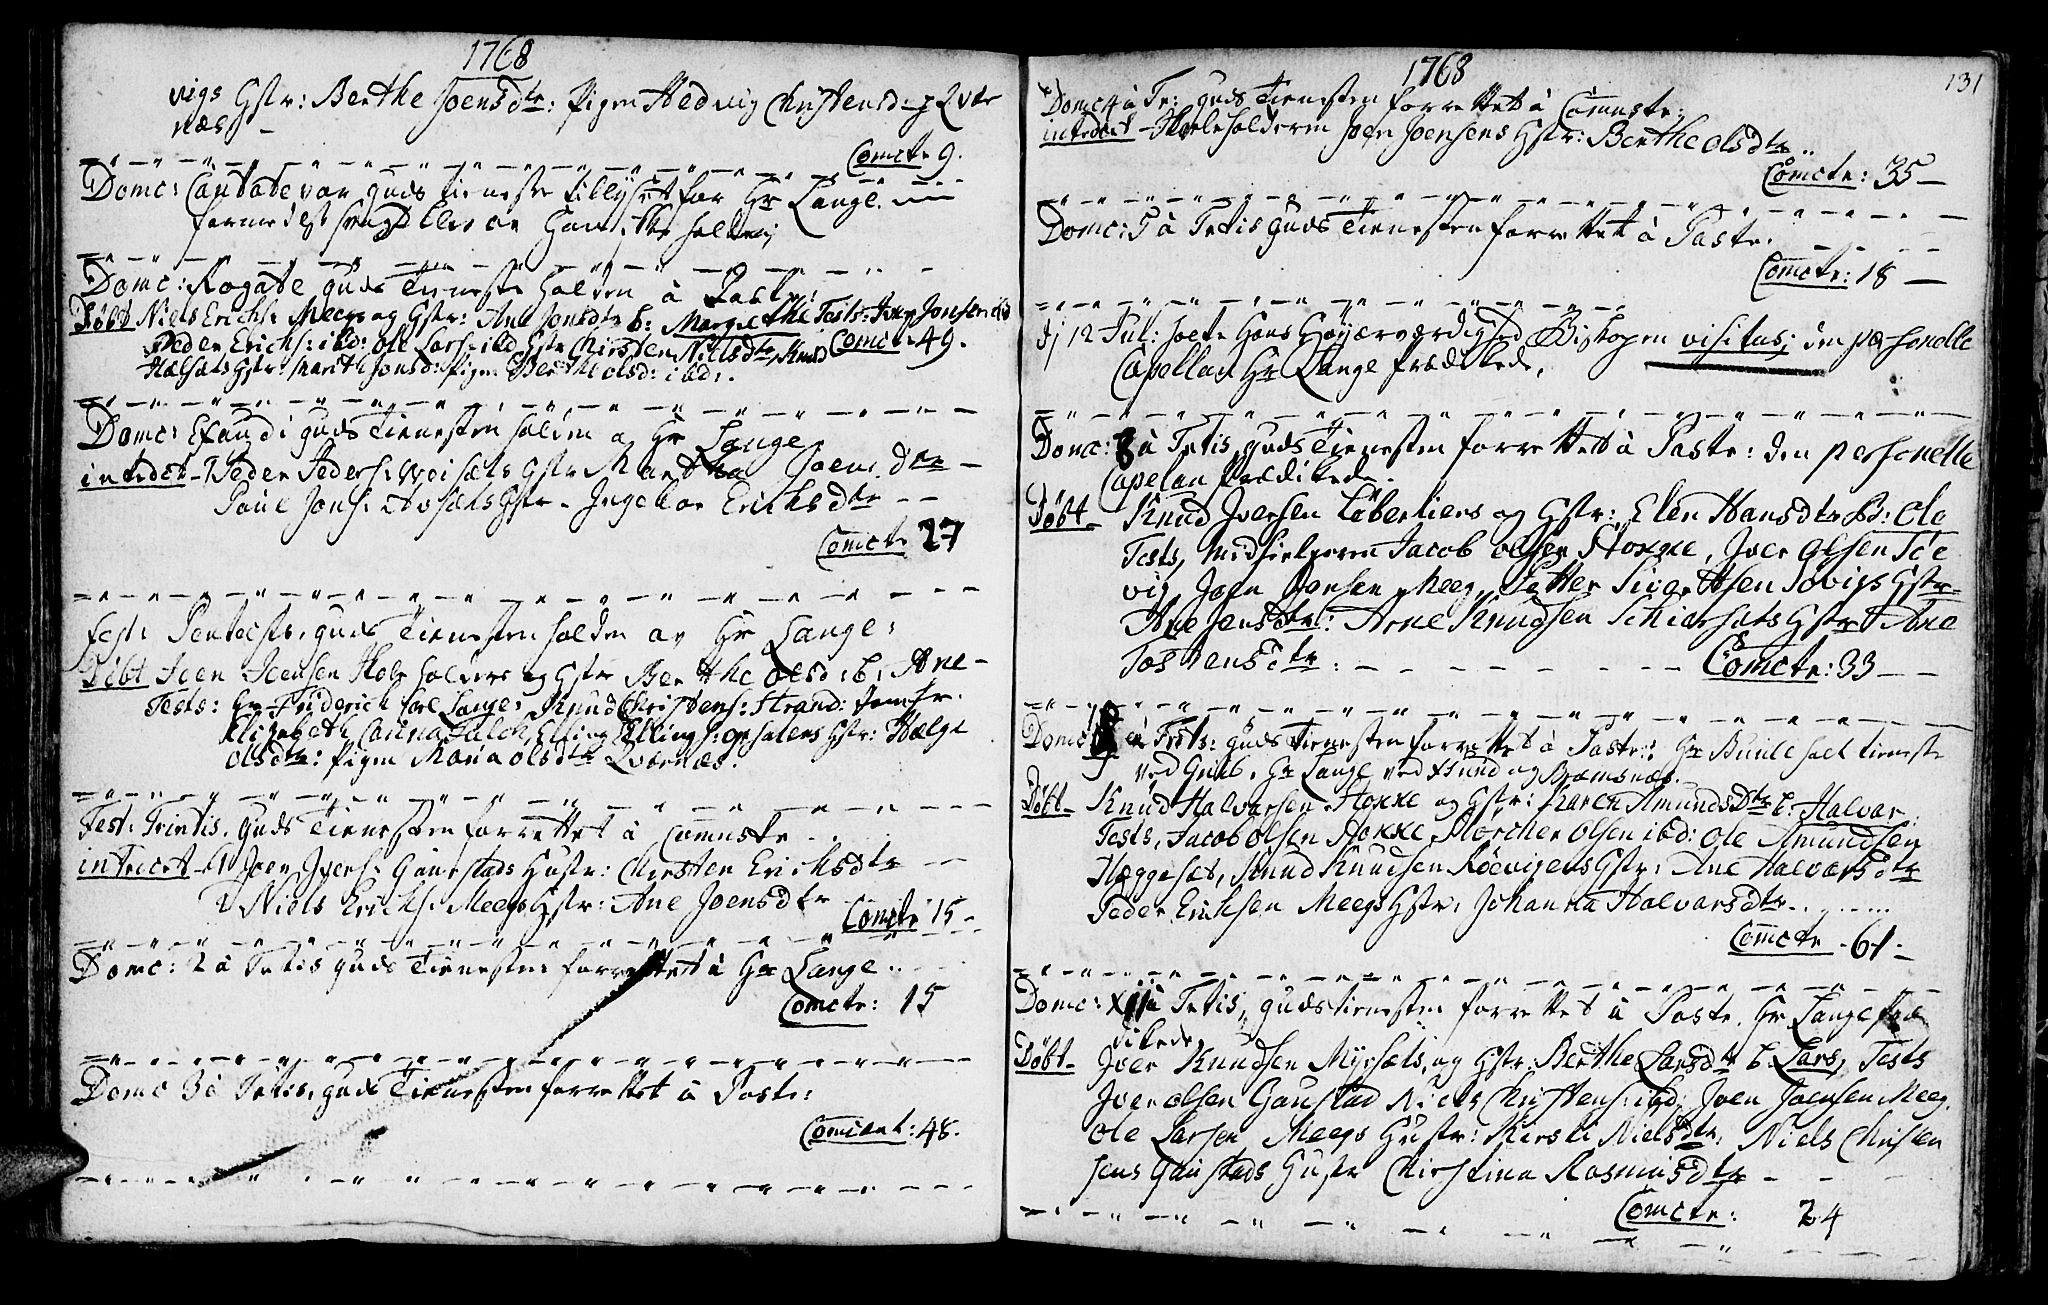 1768
vigs Gstr: Berthe Joensdtr: Pigen Hedvig Christensd: Qvær
næs
Comctr 9.
Domc: Cantate var Guds Tieneste tillyst for Hr Lange
formedelst svagd blev der
Domc: Rogate Guds Tieneste holden à Past:
Døbt Niels Erichs: Meeg og Gstr: Ane Jonsdtr b: Margrethe Tests: Jonsen ibd
Peder Erichs: ibd: Ole Lars: ibd Gstr Kirsten Nielsdtr, Knud Comct 49.
Hals Gstr: Marith Jonsd: Pigen Berthe Olsd: ibd:
Domc: Exaudi Guds Tienesten holden af Hr Lange
introdct - Peder Peders: Gstr Martha Joens dtr -
Poul Jons: Gstr - Ingebor Erichsdtr - -
Comctr 27
Fest: Pentecost: Guds Tienesten holden av Hr Lange:
Døbt Joen Joensen Skoleholders og Gstr Berthe Olsd: b: Ane -
Tests: Hr Friderich Lange: Knud Christens: Strand: Jomfr.
Elizabeth Falch, Elling Ellings: Gstr: Hælge
Olsdtr: Pigen Maria Olsdtr Qværnæs.
Fest: Trintis. Guds Tienesten forrettet à Commstr
introdct 1 Joen Ivers: Gaustads Hustr: Kirsten Erichsdtr
2 Niels Erichs: Meegs Gstr: Ane Joensdtr
Comctr 15 -
Domc: 2 à Tretis Guds Tienesten forrettet à Hr Lange
Comctr: 15
Domc 3 à Tretis, Guds Tienesten forrettet à Past:
Comctr: 48.
1768
131
Domc 4 à Tr: Guds Tienesten forrettet à Commstr:
introdct - Skoleholderen Joen Joensens Gstr: Berthe Olsdtr
Comctr: 35 -
Domc: 5 à Tretis Guds Tienesten forrettet à Past:
Comctr: 18 -
Dj 12 Jul: holte Hans Høyærværdighed Biskopen visitas; den personelle
Capellan Hr Lange prædikede,
Domc: 8 à Tretis, Guds Tienesten forrettet à Past: den personelle
Capelan prædikede.
Døbt - Knud Iversen Løberliens og Gstr: Elen Hansdtr b: Ole
Tests, Jacob Olsen Stokke, Iver Olsen Tøe
vig Joen Jonsen Meeg, Petter Sivertsen Søvigs Gstr
Ane Jensdtr: Arne Knudsen Gstr Ane
Tostensdtr: - - Comctr: 33 - -
Domc à Trets: Guds Tienesten forrettet à Past: Hr Bunde holt tieneste
ved Grib, Hr Lange ved og Bremsnæs.
Døbt - Knud Halvorsen Stokke og Gstr: Karen Amundsdtr b: Halvor.
Tests, Jacob Olsen Stokke Olsen ibd: Ole Amundsen
Hæggeset, Knud Knudsen Røevigens Gstr: Ane Halvarsdtr
Peder Erichsen Meegs Gstr: Johanna Halvarsdtr
Comctr - 61 -
Domc: à Tretis, Guds tienesten forrettet à Past: Hr Lange præ
dikede,
Døbt - Iver Knudsen Myrsæts, og Gstr: Berthe Larsdtr b. Lars, Tests
Iver Olsen Gaustad Niels Christens: ibd: Joen Joensen Meeg,
Ole Larsen Meegs Hustr: Kirsti Nielsdtr: Niels Christen
sens Gaustads Hustr Chirstina Rasmusdtr -
Comctr: 24